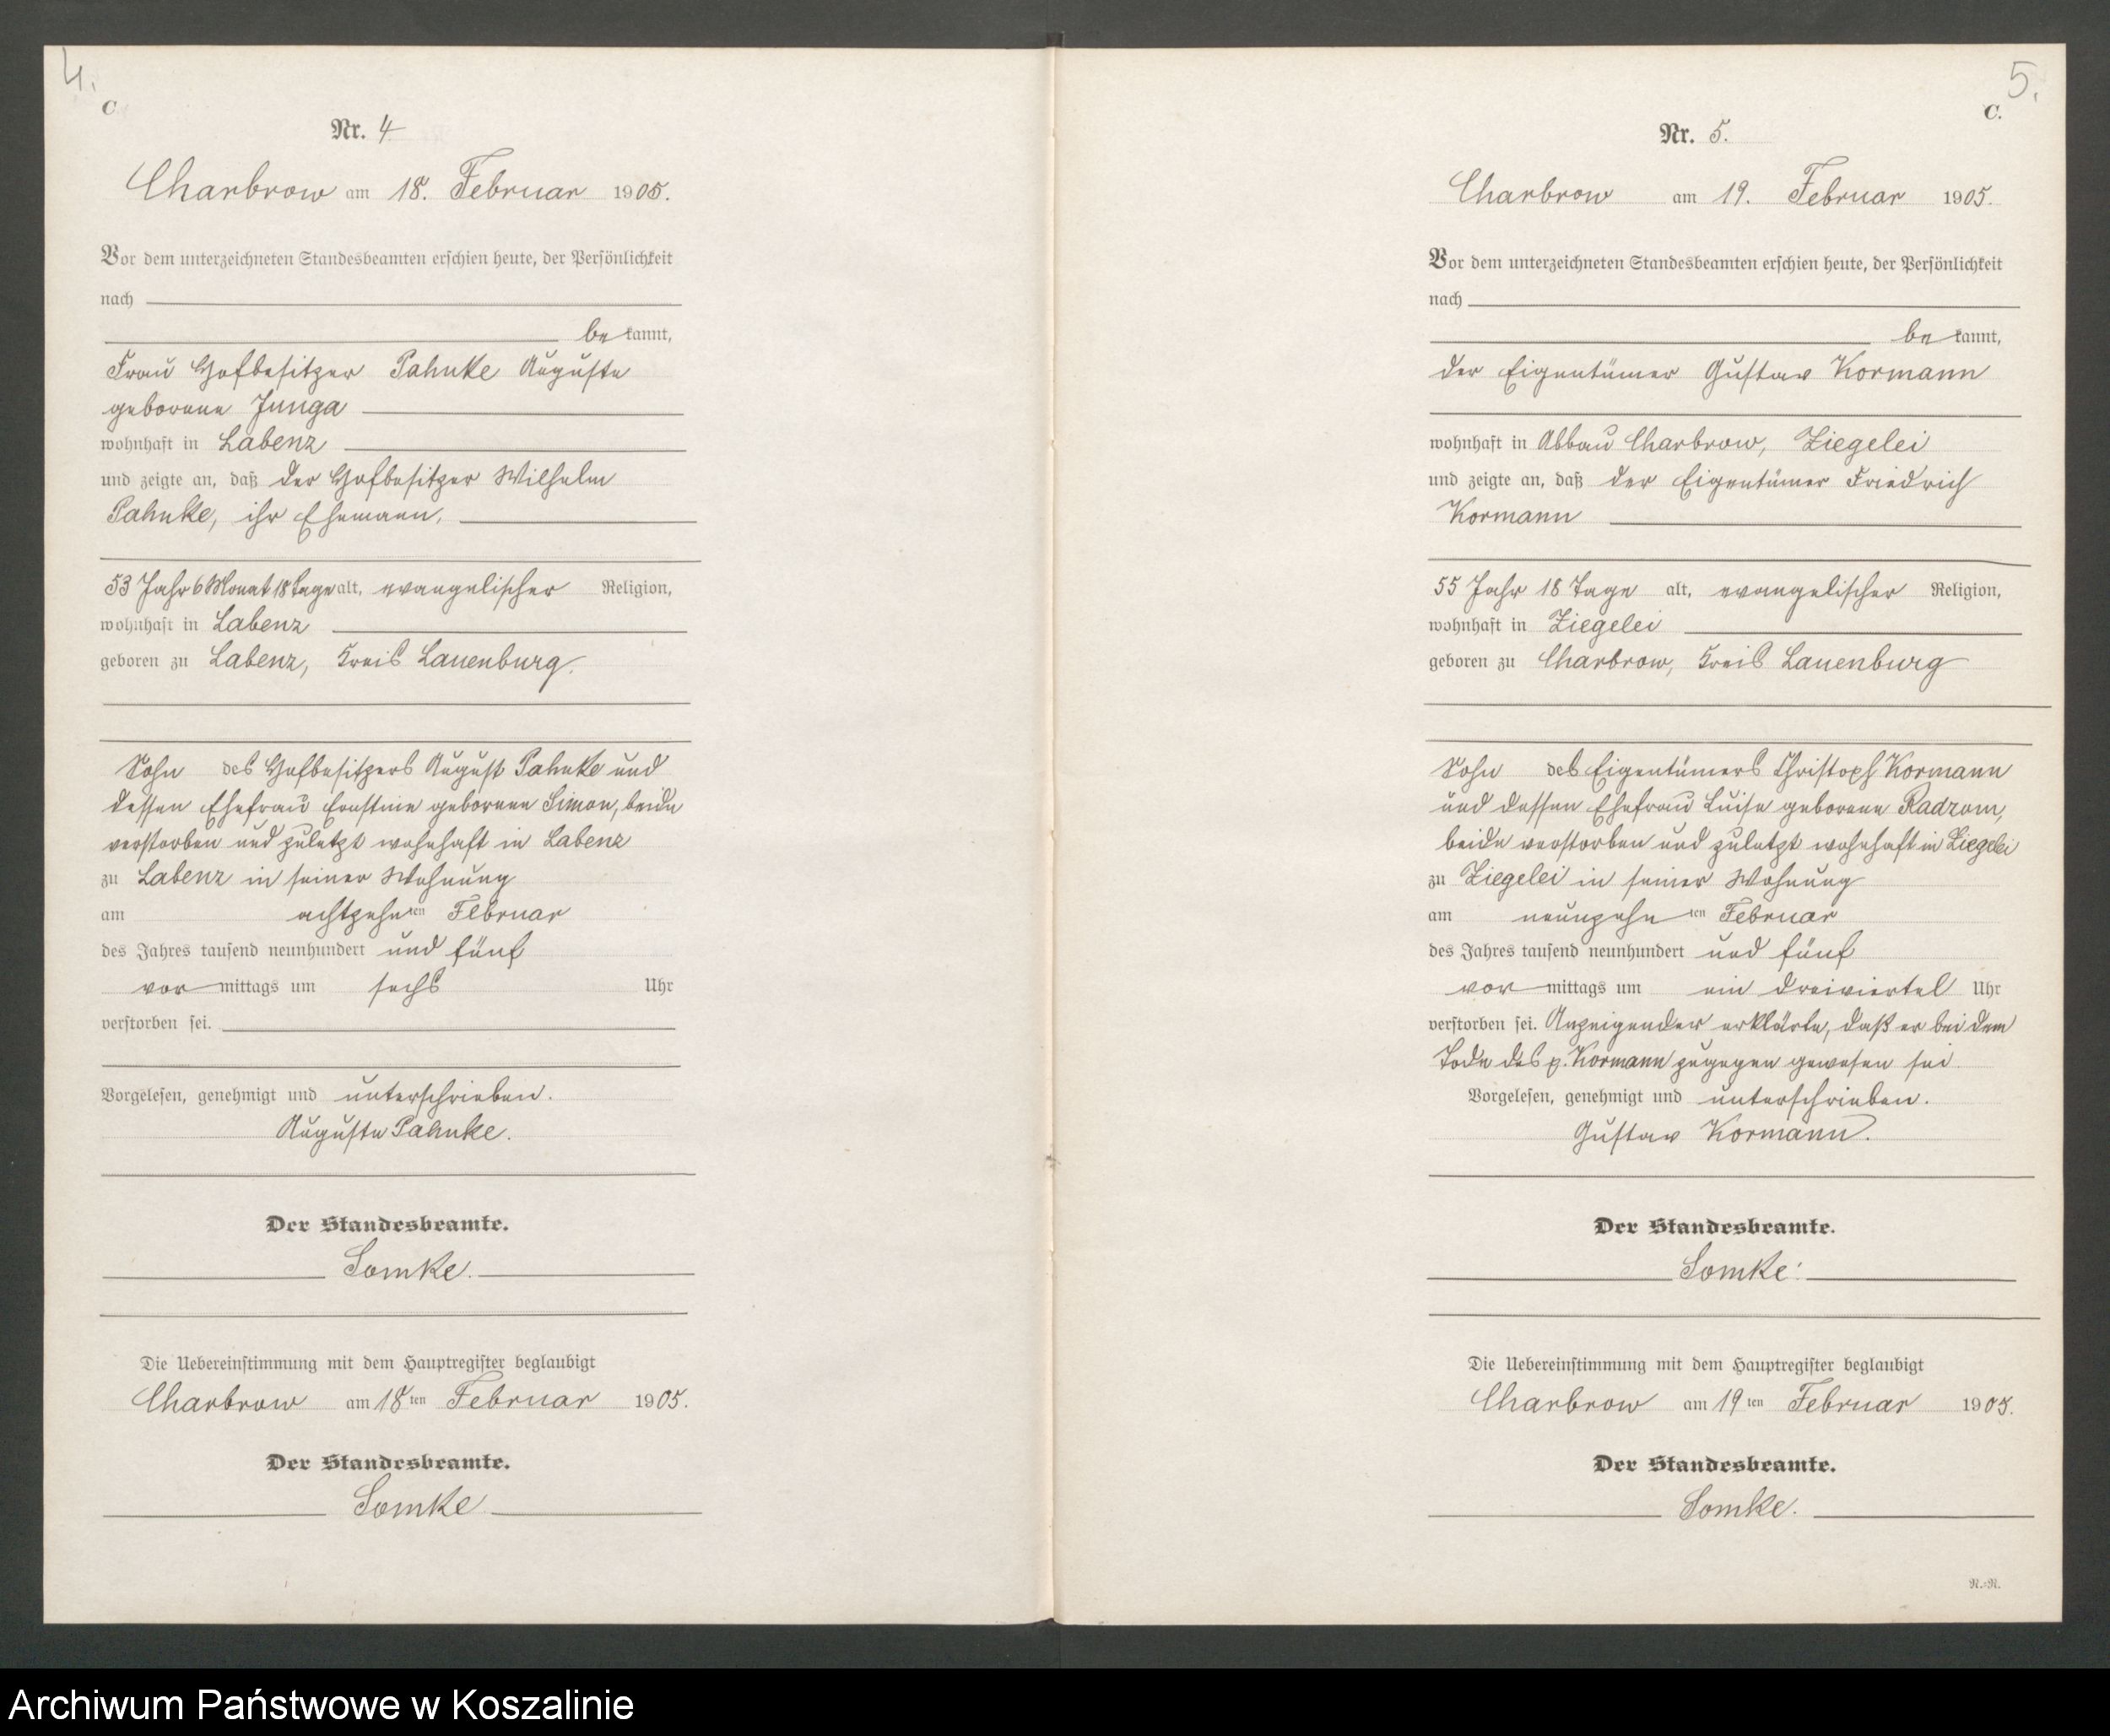 4.
C
Nr. 4
Charbrow am 18. Februar 1905.
Vor dem unterzeichneten Standesbeamten erschien heute, der Persönlichkeit
nach
bekannt,
Frau Hofbesitzer Pahnke Auguste
geborene Junga
wohnhaft in Labenz
und zeigte an, daß der Hofbesitzer Wilhelm
Pahnke, ihr Ehemann,
53 Jahr 6 Monat 18 Tage alt, evangelischer Religion,
wohnhaft in Labenz
geboren zu Labenz, Kreis Lauenburg.
Sohn des Hofbesitzers August Pahnke und
dessen Ehefrau Ernstine geborene Simon, beide
verstorben und zuletzt wohnhaft in Labenz
zu Labenz in seiner Wohnung
am achtzehnten Februar
des Jahres tausend neunhundert und fünf
vormittags um sechs Uhr
verstorben sei.
Vorgelesen, genehmigt und unterschrieben.
Auguste Pahnke.
Der Standesbeamte.
Somke.
Die Uebereinstimmung mit dem Hauptregister beglaubigt
Charbrow am 18ten Februar 1905.
Der Standesbeamte.
Somke
5.
C.
Nr. 5.
Charbrow am 19. Februar 1905.
Vor dem unterzeichneten Standesbeamten erschien heute, der Persönlichkeit
nach
bekannt,
der Eigentümer Gustav Kormann
wohnhaft in Abbau Charbrow, Ziegelei
und zeigte an, daß der Eigentümer Friedrich
Kormann
55 Jahr 18 Tage alt, evangelischer Religion,
wohnhaft in Ziegelei
geboren zu Charbrow, Kreis Lauenburg
Sohn des Eigentümers Christoph Kormann
und dessen Ehefrau Luise geborene Radzom,
beide verstorben und zuletzt wohnhaft in Ziegelei
zu Ziegelei in seiner Wohnung
am neunzehnten Februar
des Jahres tausend neunhundert und fünf
vormittags um ein dreiviertel Uhr
verstorben sei. Anzeigender erklärte, daß er bei dem
Tode des p. Kormann zugegen gewesen sei.
Vorgelesen, genehmigt und unterschrieben.
Gustav Kormann.
Der Standesbeamte.
Somke.
Die Uebereinstimmung mit dem Hauptregister beglaubigt
Charbrow am 19ten Februar 1905.
Der Standesbeamte.
Somke.
R.=R.
Archiwum Państwowe w Koszalinie